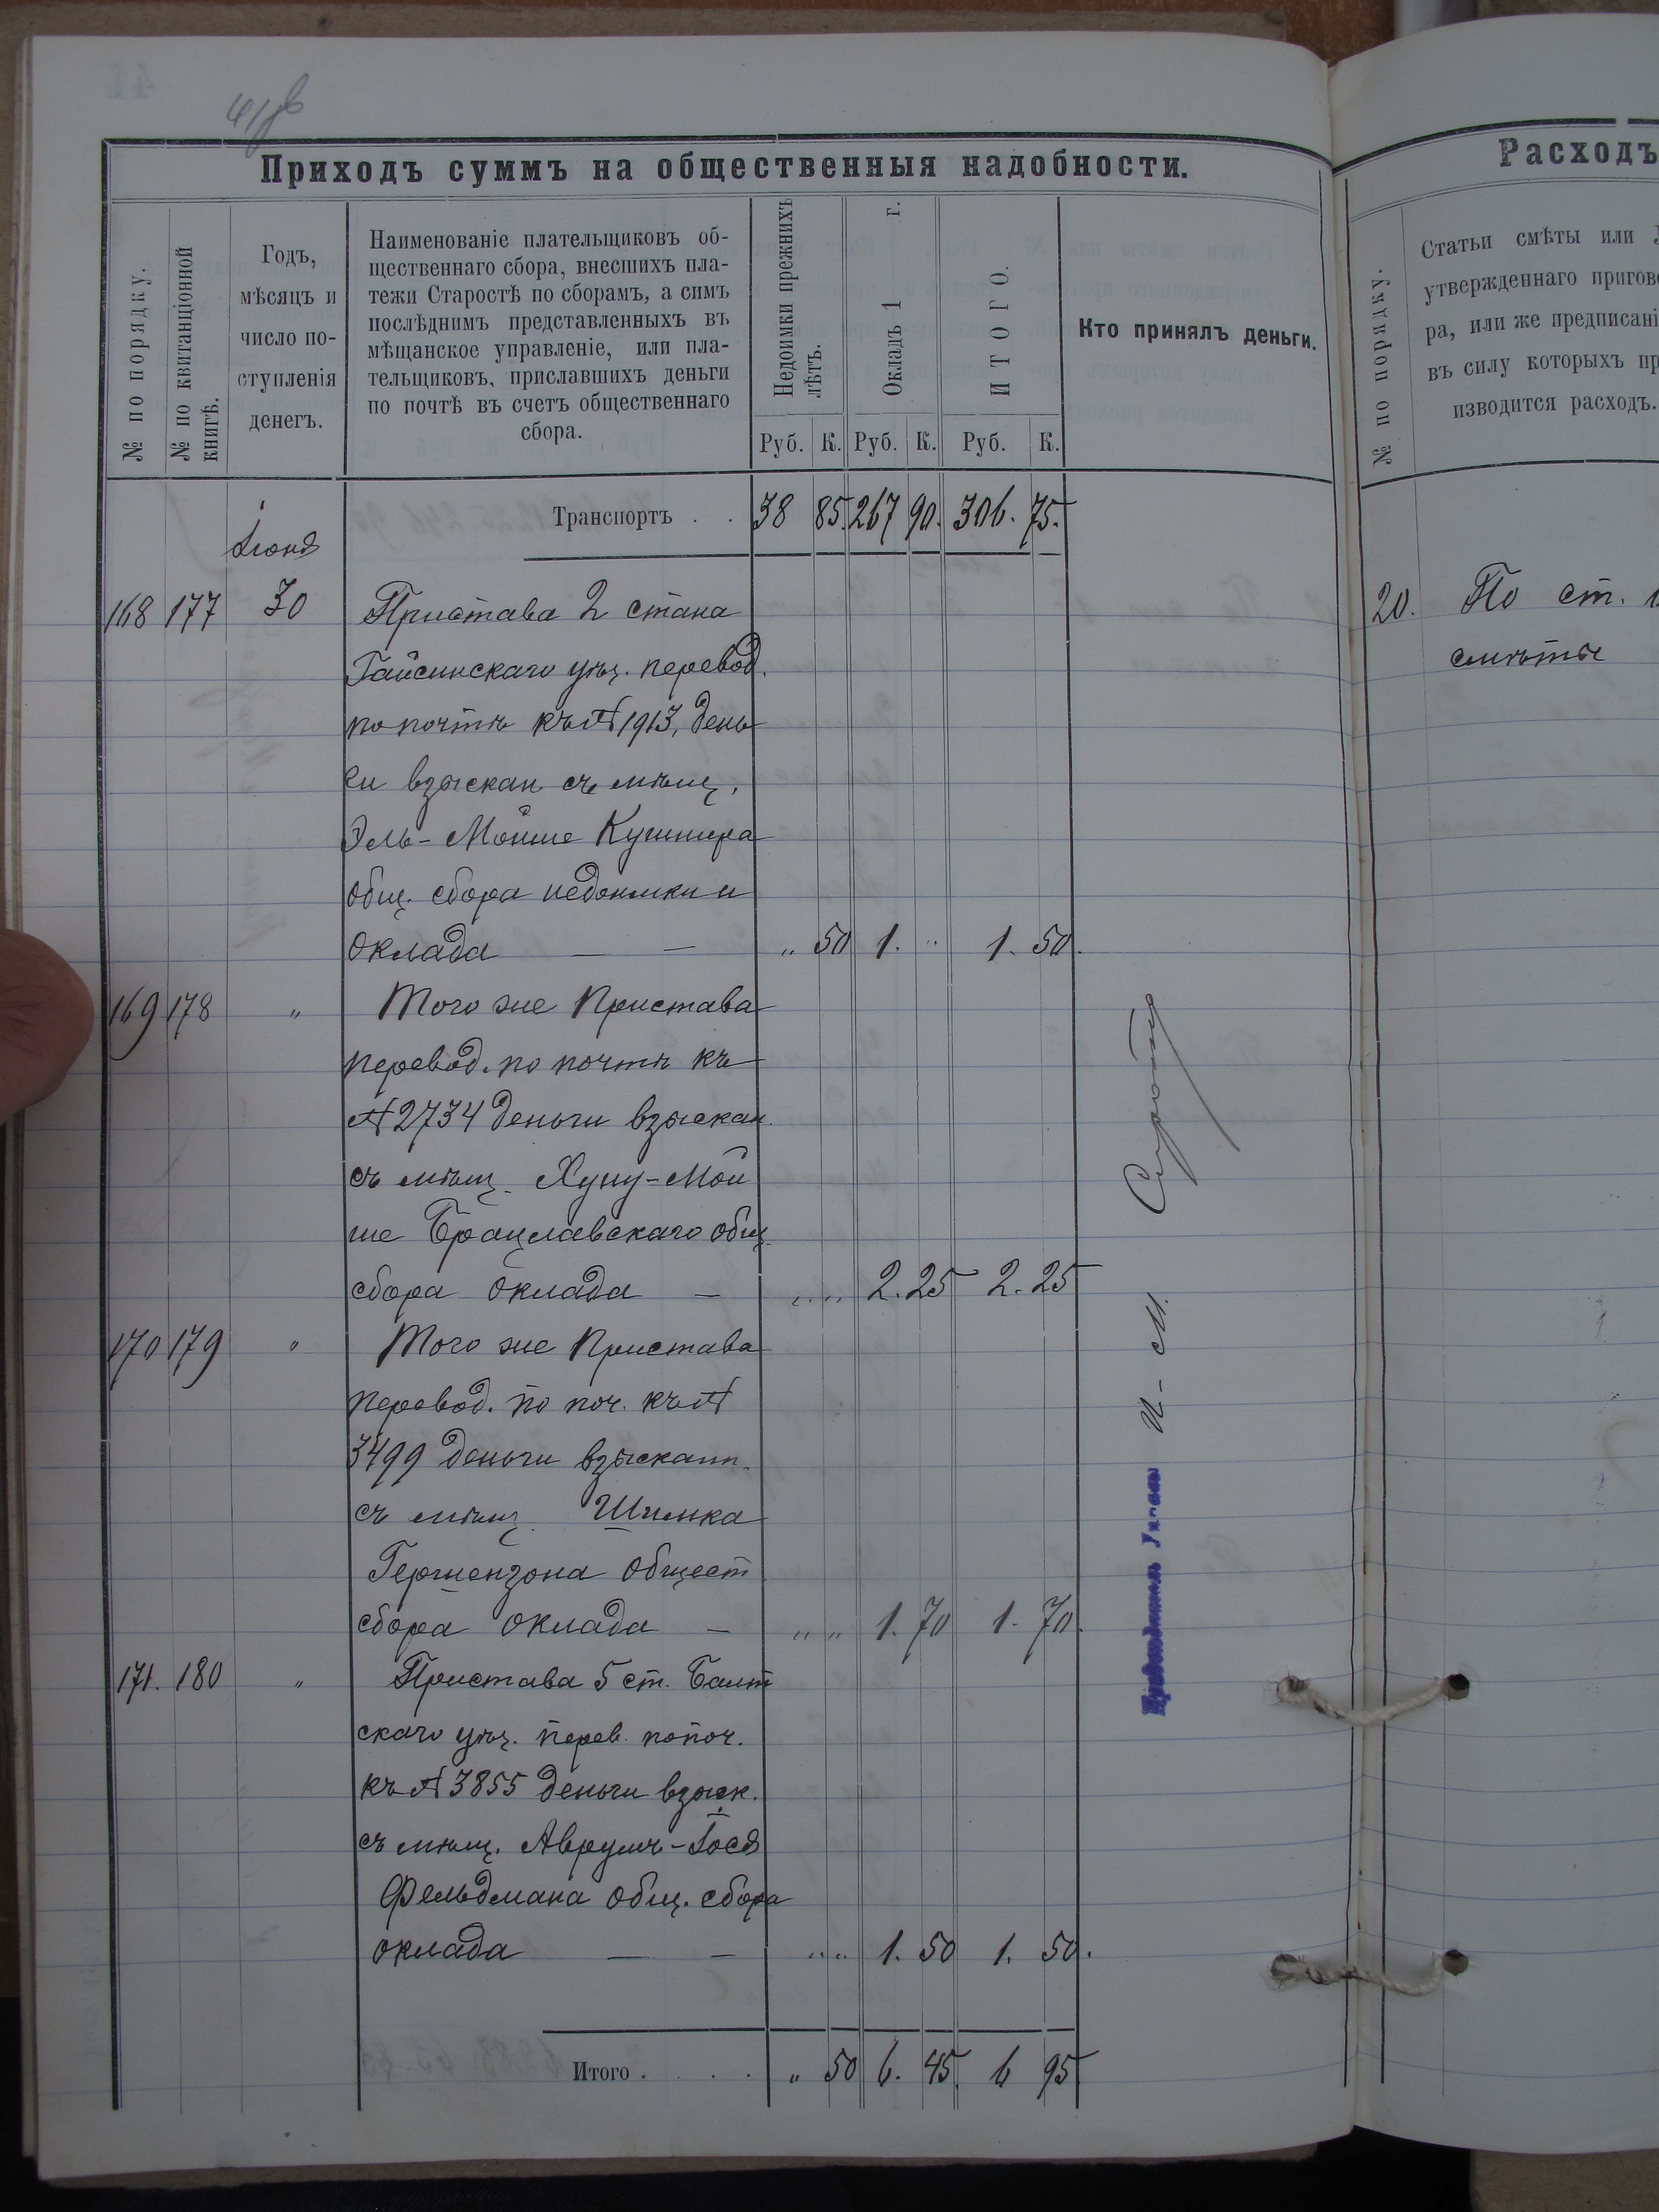 41
Приходъ суммъ на общественныя надобности.
№ по порядку.
№ по квитанціонной книгѣ.
Годъ,
мѣсяцъ и
число по-
ступленія
денегъ.
Наименованіе плательщиковъ об-
щественнаго сбора, внесшихъ пла-
тежи Старостѣ по сборамъ, а симъ
послѣднимъ представленныхъ въ
мѣщанское управленіе, или пла-
тельщиковъ, приславшихъ деньги
по почтѣ въ счетъ общественнаго
сбора.
Недоимки прежнихъ лѣтъ.
Окладъ 1 г.
ИТОГО.
Кто принялъ деньги.
Руб. К. Руб. К. Руб. К.
Транспортъ . . 38 85. 267 90. 306. 75.
Іюня
168 177 30 Пристава 2 стана
Гайсинскаго уѣз. перевод.
по почтѣ къ № 1913, день
ги взыскан съ мѣщ.
Эль-Мойше Кушнира
общ. сбора недоимки и
оклада — — " 50 1. " 1. 50.
169 178 " Того же Пристава
перевод. по почтѣ къ
№ 2734 деньги взыскан.
съ мѣщ. Хуну-Мой
ше Брацлавскаго общ.
сбора оклада — " " 2. 25 2. 25
170 179 " Того же Пристава
перевод. по поч. къ №
3499 деньги взыскан.
съ мѣщ. Шимка
Гершензона общест
сбора оклада — " " 1. 70 1. 70.
171. 180 " Пристава 5 ст. Балт
скаго уѣз. перев. по поч.
къ № 3855 деньги взыск.
съ мѣщ. Аврумъ-Іося
Фельдмана общ. сбора
оклада — — " " 1. 50 1. 50.
Итого . . . . " 50 6. 45. 6 95
И-М.
Расходъ
№ по порядку.
Статьи смѣты или
утвержденнаго пригов
ра, или же предписані
въ силу которыхъ пр
изводится расходъ.
20. По ст.
смѣты